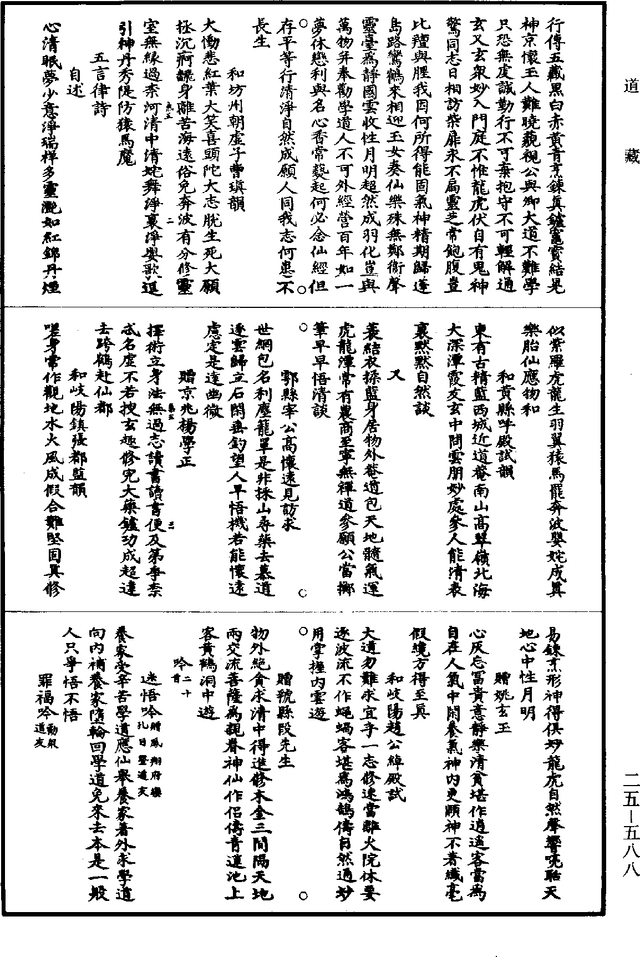 道藏
行傳五藏黑白赤黃青烹鍊真鑪竈寶結晃
神京懷玉人難曉藐視公與卿大道不難學
只恐無虔誠勤行不可棄抱守不可輕解通
玄又玄衆妙入門庭不惟龍虎伏自有鬼神
驚同志日相訪柴扉永不扃靈芝常飽腹豈
比羶與腥我因何所得能固氣神精期歸蓬
島路鸞鶴來相迎玉女奏仙樂殊無鄭衛聲
靈臺為靜國雲收性月明超然成羽化豈與
萬物并奉勸學道人不可外經營百年如一
夢休戀利與名心香常爇起何必念仙經但
存平等行清淨自然成願人同我志何患不
長生
和坊州朝虛子曹瑱韻
大慟悲紅葉大笑喜頭陀大志脫生死大願
拯沉痾鍊身離苦海遠俗免奔波有分修靈
室無緣過柰河清中清姹舞淨裏淨嬰歌退
引神丹秀隄防猿馬魔
五言律詩
自述
心清眠夢少意淨瑞祥多靈灔如紅錦丹煙
似紫羅虎龍生羽翼猿馬罷奔波嬰姹成真
樂胎仙應物和
和黃縣呼殿試韻
東有古精藍西城近道菴南山高翠嶺北海
大深潭霞友玄中問雲朋妙處參人能清衷
裏默默自然談
又
蓑結衣搽藍身居物外菴道包天地髓氣運
虎龍潭常有農商至寧無禪道參願公當擲
筆早早悟清談
鄠縣宰公高懷遠見訪求
世網包名利塵籠罩是非採山尋藥去慕道
逐雲歸立石閑垂釣望人早悟機若能懷遠
慮定是達幽微
贈京兆楊學正
擇術立身法無過志讀書讀書便及第爭柰
或名虛不若搜玄趣修完大藥鑪功成超達
去跨鶴赴仙都
和岐陽鎮張都監韻
嗟身常作觀地水火風成假合難堅固真修
易鍊烹形神得俱妙龍虎自然聲響亮聒天
地心中性月明
贈姚玄玉
心灰忘富貴意靜樂清貧堪作逍遙客當為
自在人氣中閑養氣神內更頤神不著纖毫
假繞方得至真
和岐陽趙公綽殿試
大道勿難求宜乎一志修速當離火院休要
逐波流不作蠅蝸客堪為鴻鵠儔自然通妙
用掌握內雲遊
贈虢縣段先生
物外絕貪求清中得進修木金三間隔天地
兩交流菩薩為親眷神仙作侶儔青蓮池上
客黃鶴洞中遊
吟二十首
迷悟吟
養家受辛苦學道應仙舉養家著外求學道
向內補養家墮輪回學道免來去本是一般
人只爭悟不悟
罪福吟勸殺道友
二五—五八八